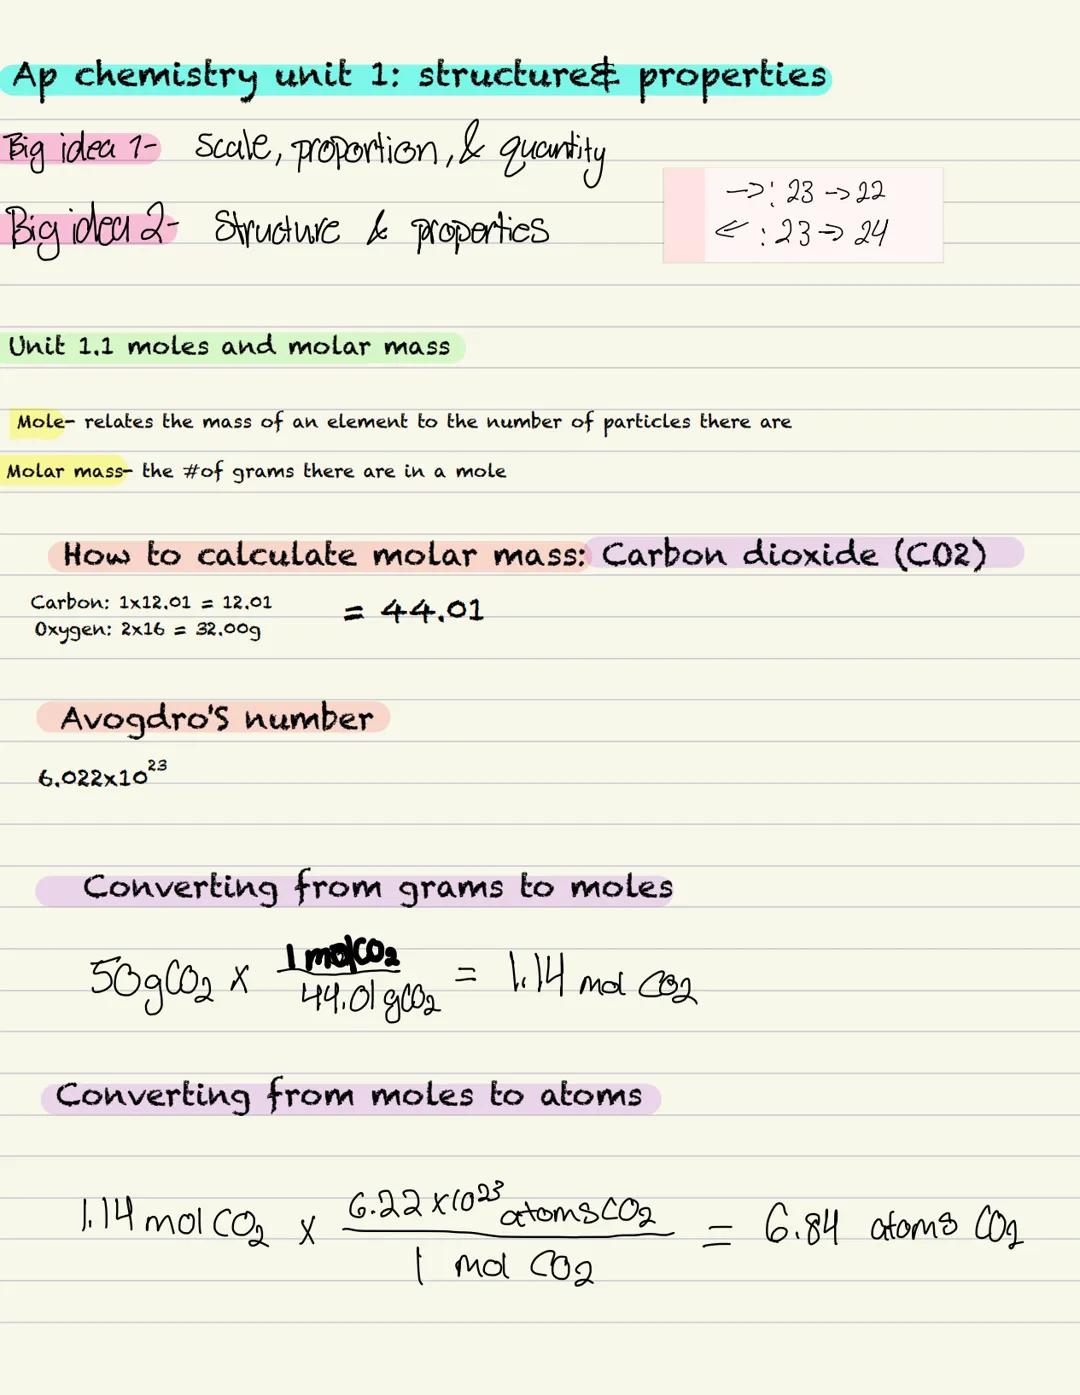 Ap chemistry unit 1: structure& properties
Big idea 1- Scale, proportion, & quantity
->: 23 -> 22
Big idea 2- Structure & properties
<- : 23 -> 24
Unit 1.1 moles and molar mass
Mole- relates the mass of an element to the number of particles there are
Molar mass- the #of grams there are in a mole
How to calculate molar mass: Carbon dioxide (CO2)
Carbon: 1x12.01 = 12.01
Oxygen: 2x16 = 32.00g
= 44.01
Avogdro'S number
6.022x10²³
Converting from grams to moles
50gCO₂ x 1 molCO₂ / 44.01 gCO₂ = 1.14 mol CO₂
Converting from moles to atoms
1.14 mol CO₂ x 6.22 x10²³ atoms CO₂ / 1 mol CO₂ = 6.84 atoms CO₂